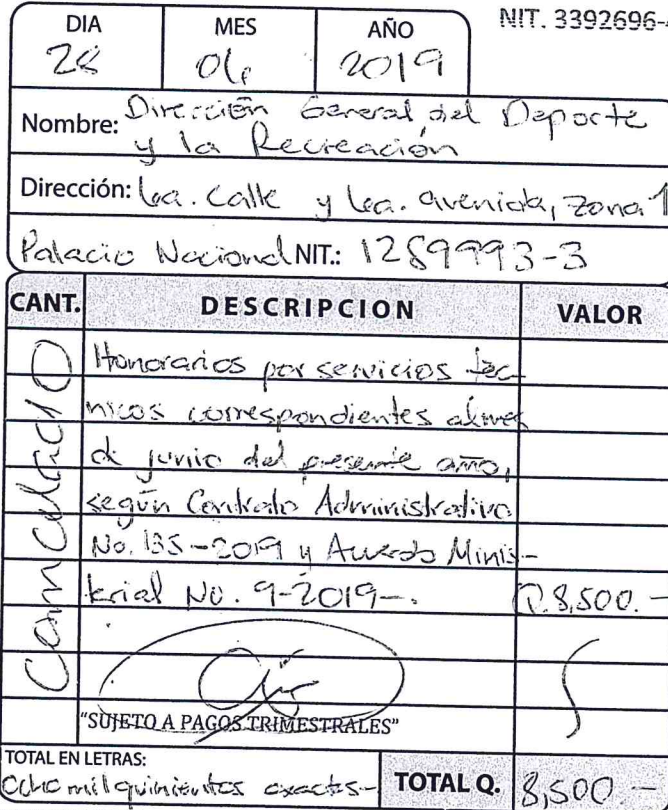 NIT. 3392696-
DIA MES AÑO
28 06 2019
Nombre: Dirección General del Deporte
y la Recreación
Dirección: 6a. Calle y 6a. avenida, zona 1
Palacio Nacional NIT.: 1289993-3
CANT. DESCRIPCION VALOR
Cancelado
Honorarios por servicios téc-
nicos correspondientes al mes
de junio del presente año,
según Contrato Administrativo
No. 135-2019 y Acuerdo Minis-
terial No. 9-2019-. Q.8,500.-
"SUJETO A PAGOS TRIMESTRALES"
TOTAL EN LETRAS:
Ocho mil quinientos exactos- TOTAL Q. 8,500.-